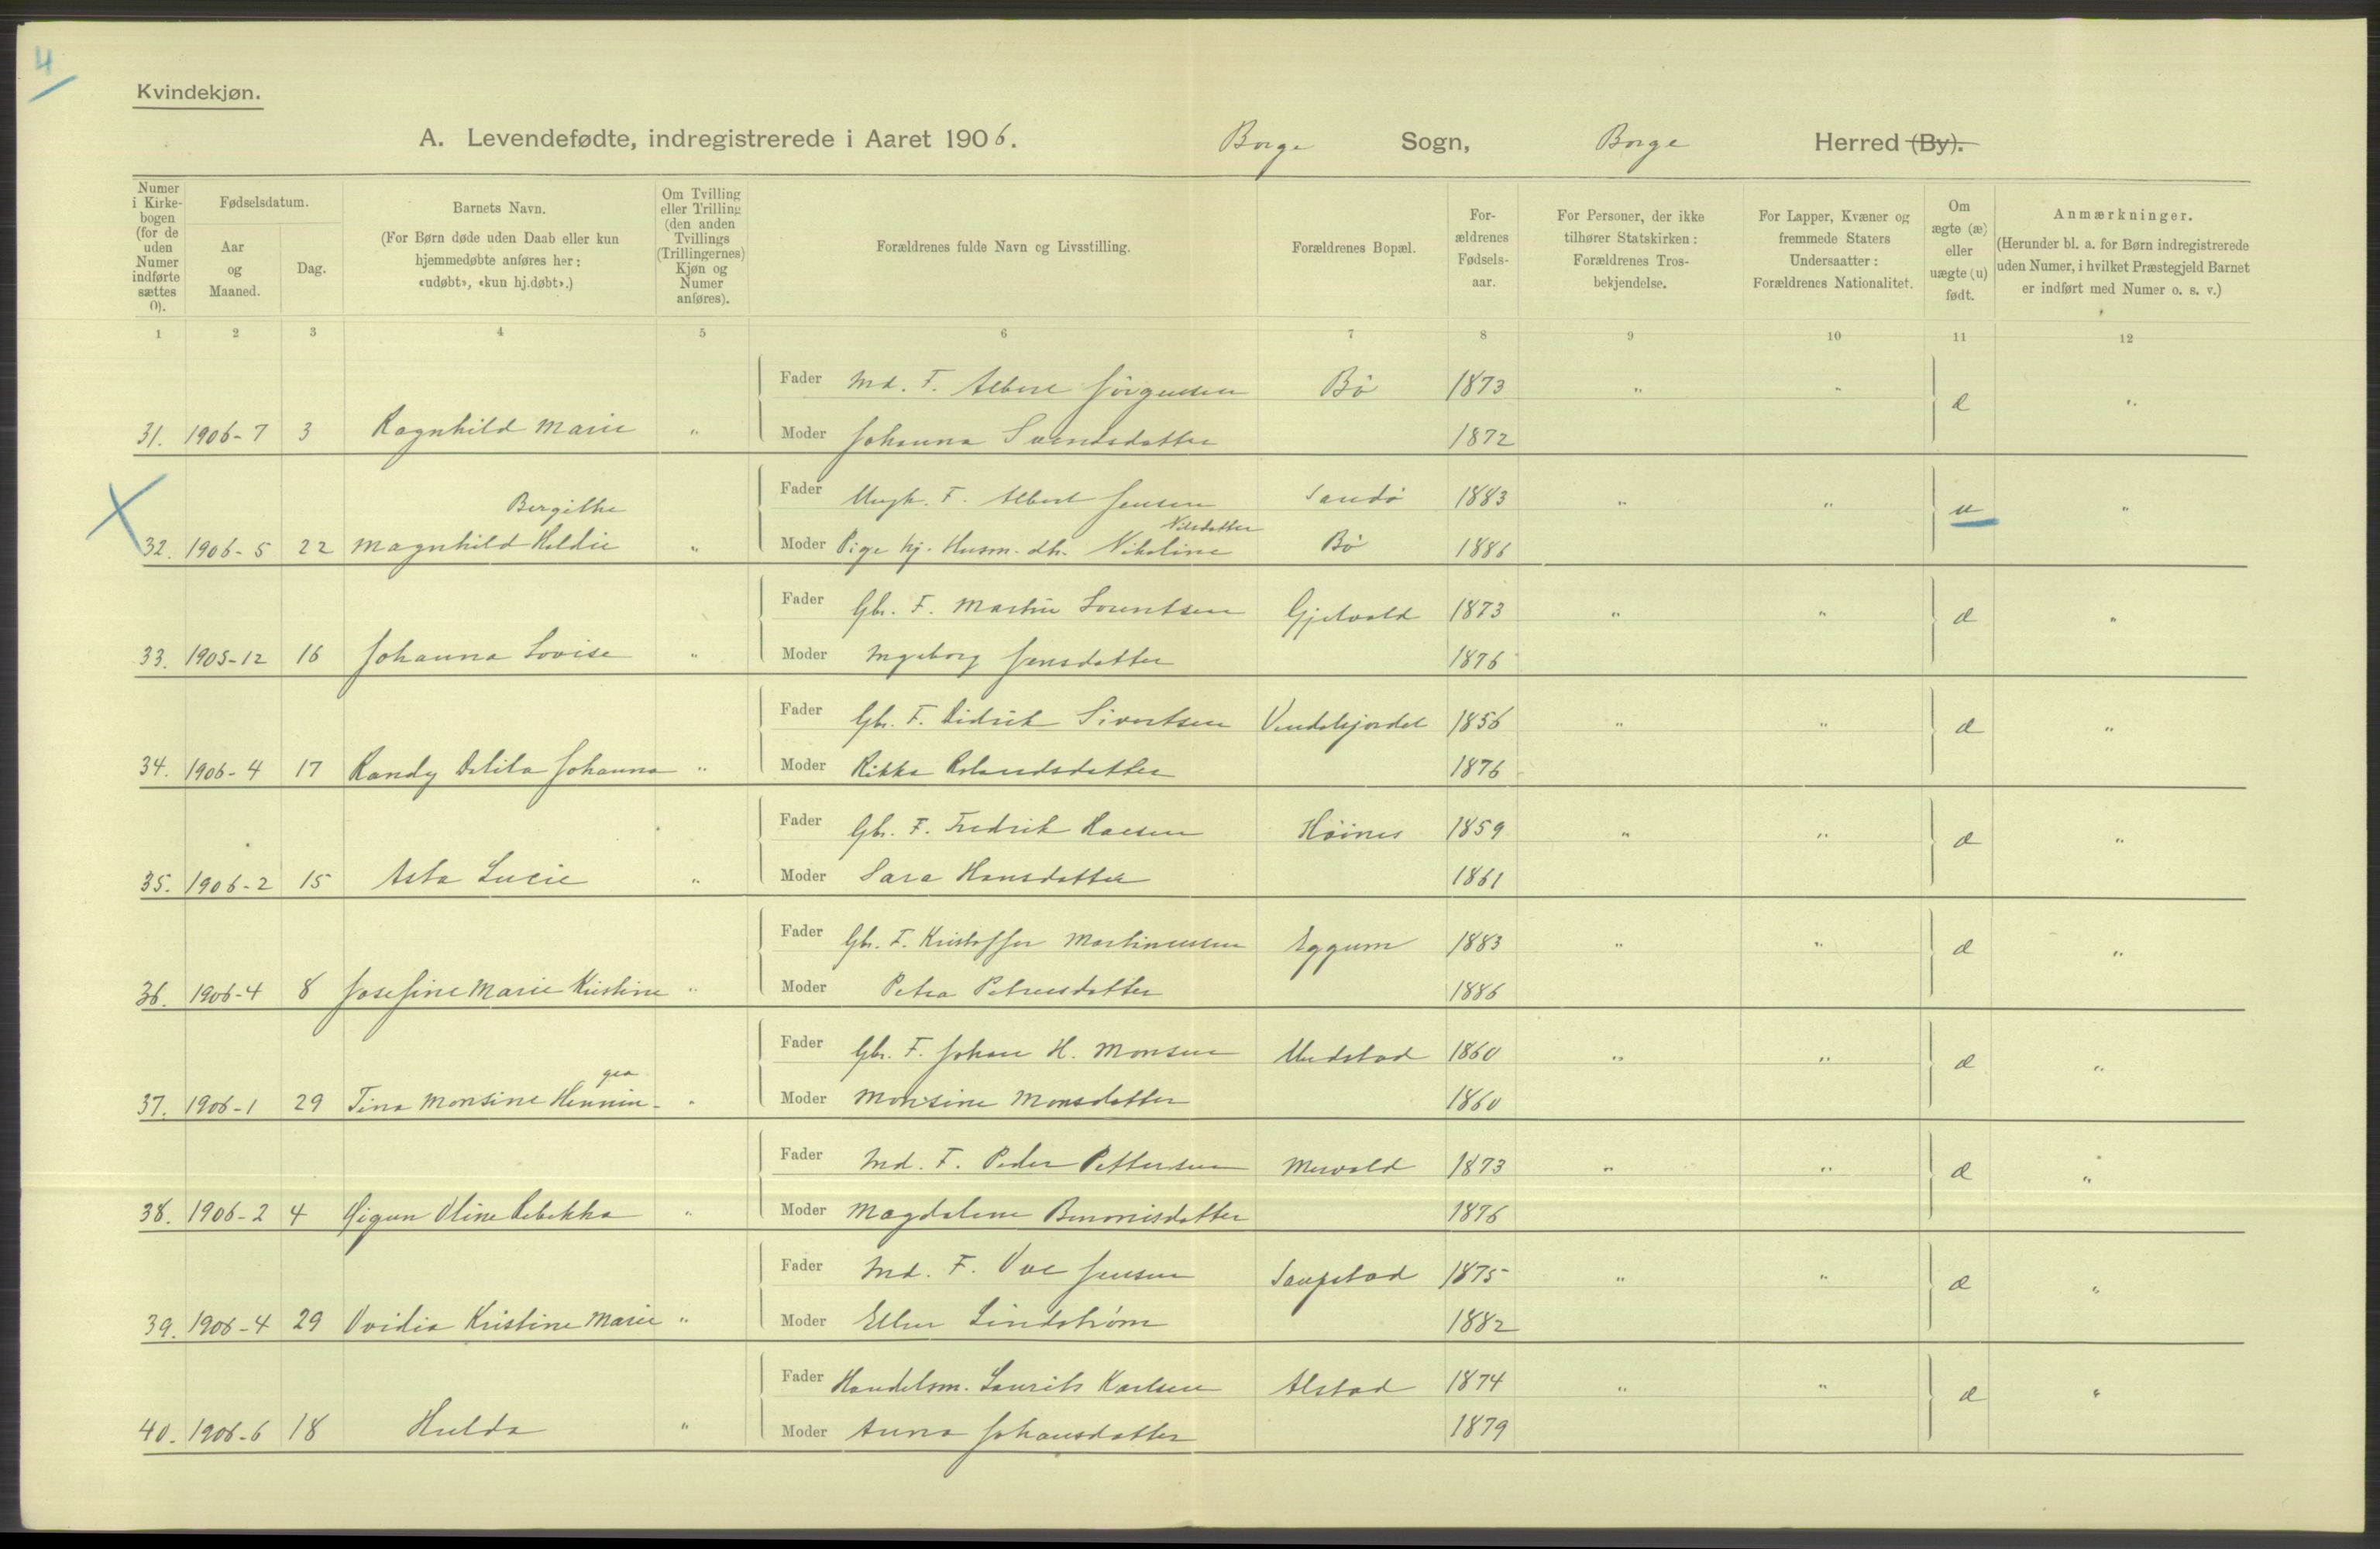 4
Kvindekjøn.
A. Levendefødte, indregistrerede i Aaret 1906. Borge Sogn, Borge Herred (By).
Numer i Kirkebogen (for de uden Numer indførte sættes 0).
Fødselsdatum.
Aar og Maaned.
Dag.
Barnets Navn.
(For Børn døde uden Daab eller kun hjemmedøbte anføres her: «udøbt», «kun hj.døbt».)
Om Tvilling eller Trilling (den anden Tvillings (Trillingernes) Kjøn og Numer anføres).
Forældrenes fulde Navn og Livsstilling.
Forældrenes Bopæl.
Forældrenes Fødselsaar.
For Personer, der ikke tilhører Statskirken: Forældrenes Trosbekjendelse.
For Lapper, Kvæner og fremmede Staters Undersaatter: Forældrenes Nationalitet.
Om ægte (æ) eller uægte (u) født.
Anmærkninger.
(Herunder bl. a. for Børn indregistrerede uden Numer, i hvilket Præstegjeld Barnet er indført med Numer o. s. v.)
1 2 3 4 5 6 7 8 9 10 11 12
Fader Md. F. Albert Jörgensen Bö 1873 " " æ "
31. 1906-7 3 Ragnhild Marie " Moder Johanna Svendsdatter 1872
Fader Ungk. F. Albert Jensen Sandö 1883 " " u "
Bergithe
Nilsdatter
32. 1906-5 22 Magnhild Heldie " Moder Pige hj. Husm. dtr. Nikoline Bö 1886
Fader Gbr. F. Martin Lorentsen Gjelvold 1873 " " æ "
33. 1905-12 16 Johanna Lovise " Moder Ingeborg Jensdatter 1876
Fader Gbr. F. Didrik Sivertsen Vendelsjordet 1856 " " æ "
34. 1906-4 17 Randy Delila Johanna " Moder Rikka Rolandsdatter 1876
Fader Gbr. F. Fredrik Hansen Höines 1859 " " æ "
35. 1906-2 15 Asta Lucie " Moder Sara Hansdatter 1861
Fader Gbr. F. Kristoffer Martinussen Eggum 1883 " " æ "
36. 1906-4 8 Josefine Marie Kristine " Moder Petra Petersdatter 1886
Fader Gbr. F. Johan H. Monsen Undstad 1860 " " æ "
gea
37. 1906-1 29 Tina Monsine Hennin- " Moder Monsine Monsdatter 1860
Fader Md. F. Peder Pettersen Mervold 1873 " " æ "
38. 1906-2 4 Sigun Oline Rebekka " Moder Magdalene Benonisdatter 1876
Fader Md. F. Ove Jensen Saupstad 1875 " " æ "
39. 1906-4 29 Ovidia Kristine Marie " Moder Ellen Lindström 1882
Fader Handelsm. Laurits Karlsen Alstad 1874 " " æ "
40. 1906-6 18 Hulda " Moder Anna Johansdatter 1879